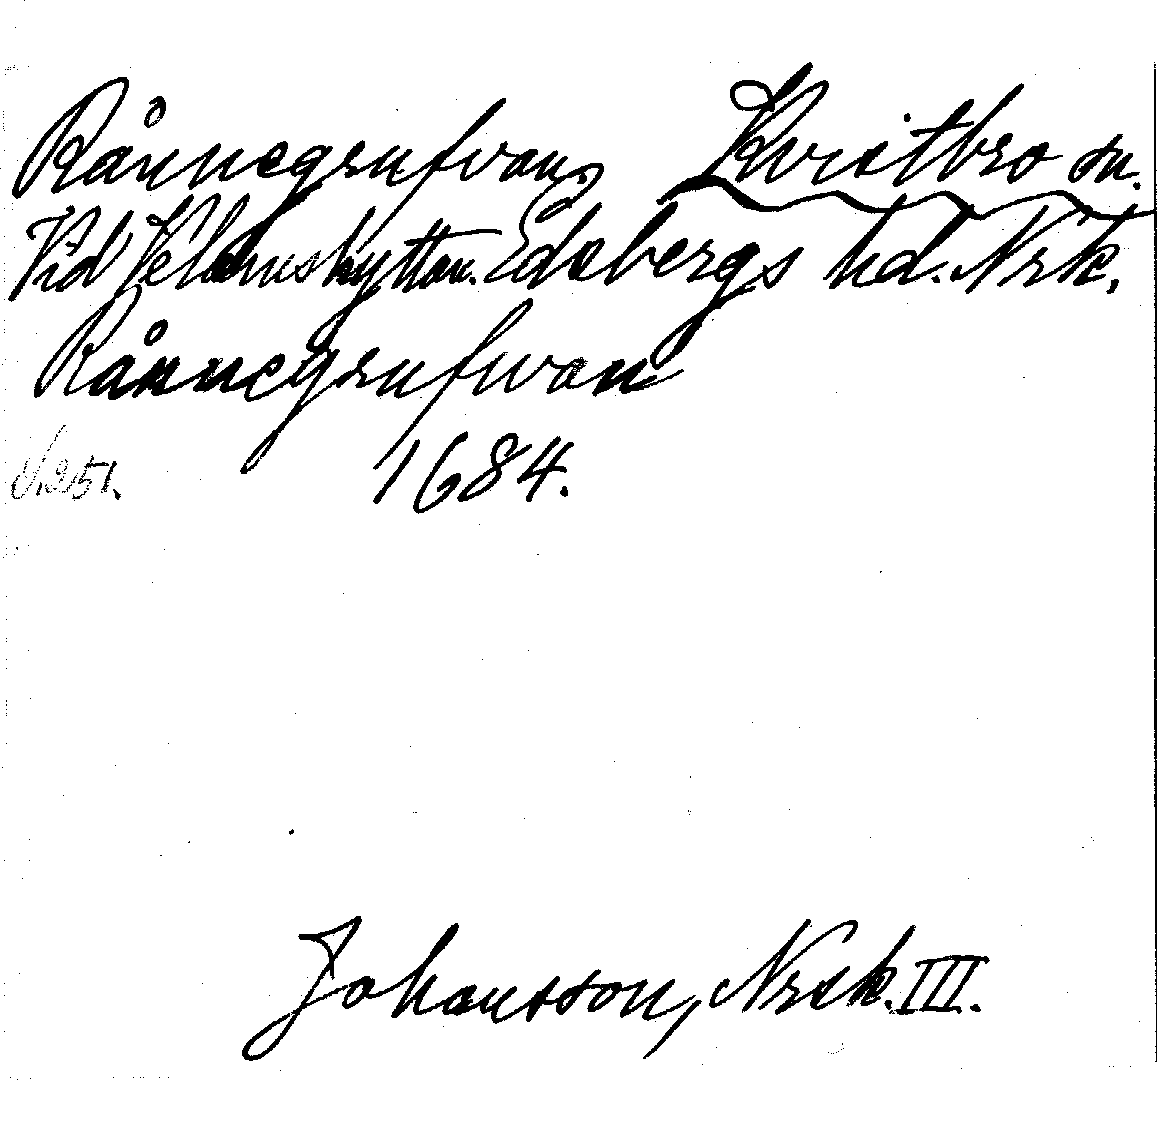 Rånnegrufvan, Kvistbro sn.
Vid Velamshyttan. Edsbergs hd. Nrk.
Rånnegrufwan
1684.
S. 251.
Johansson, Nrsk. III.